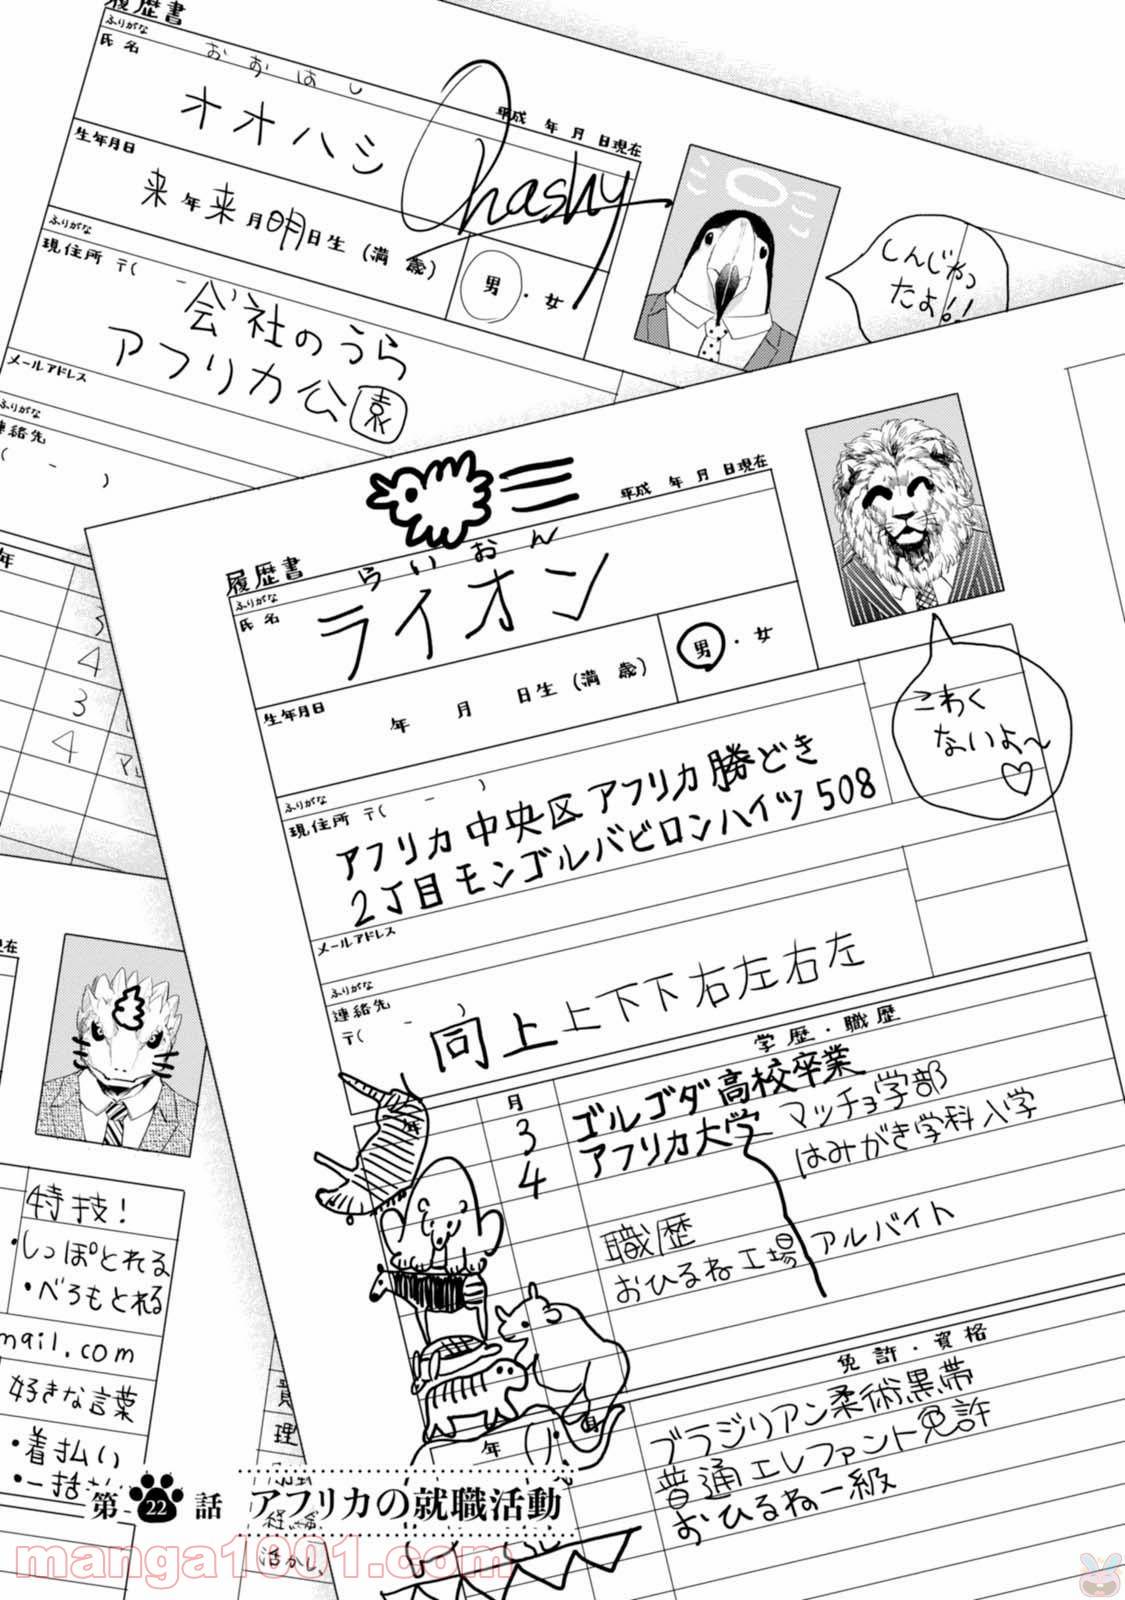 履歴書
ふりがな
おおはし
氏名
オオハシ
Ohashy
平成 年 月 日現在
生年月日
来年来月明日生 (満 歳)
男・女
ふりがな
現住所 〒( - )
会社のうら
アフリカ公園
メールアドレス
ふりがな
連絡先
( - )
しんじゃっ
たよ!!
年
3
4
3
4
履歴書
平成 年 月 日現在
ふりがな
らいおん
氏名
ライオン
生年月日
年 月 日生 (満 歳)
男・女
こわく
ないよ〜
♡
ふりがな
現住所 〒( - )
アフリカ中央区アフリカ勝どき
2丁目モンゴルバビロンハイツ508
メールアドレス
ふりがな
連絡先
〒( - )
同上上下下右左右左
学歴・職歴
月
3 ゴルゴダ高校卒業
4 アフリカ大学マッチョ学部
はみがき学科入学
職歴
おひるね工場アルバイト
年
月
免許・資格
ブラジリアン柔術黒帯
普通エレファント免許
おひるね一級
現在
特技!
・しっぽとれる
・べろもとれる
mail.com
好きな言葉
・着払い
・一括
理
活かし、
第22話 アフリカの就職活動
manga1001.com